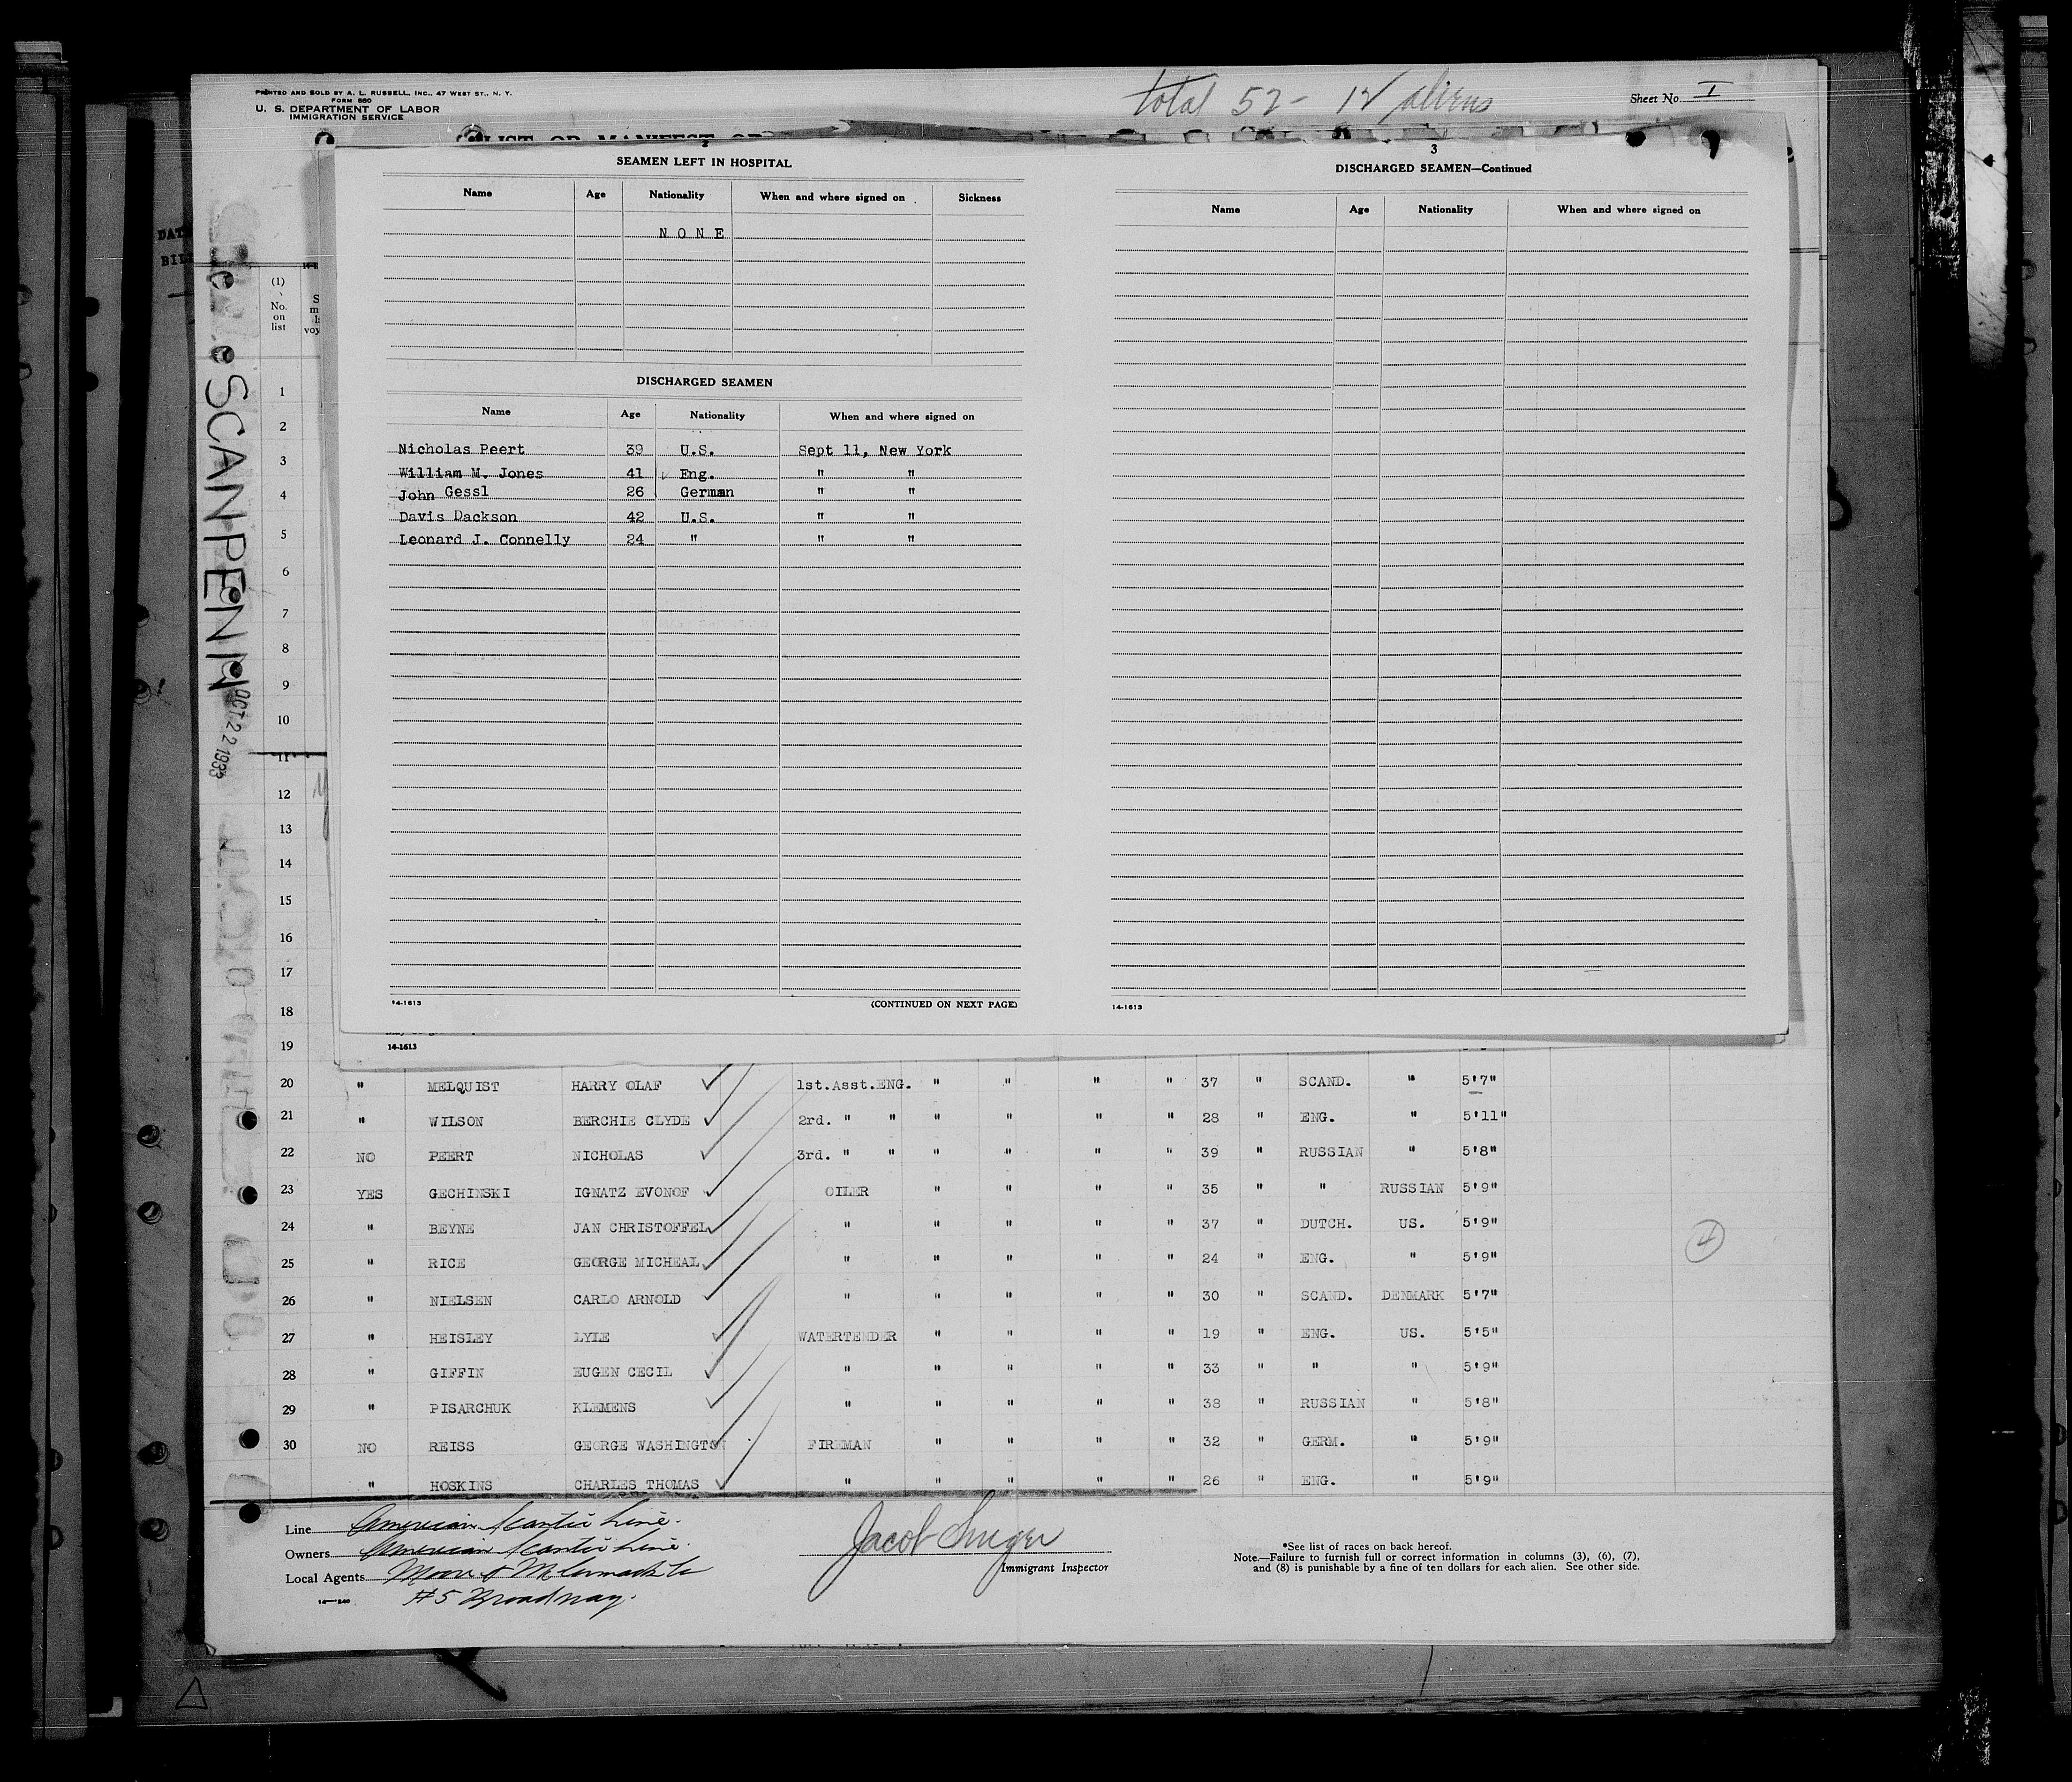 PRINTED AND SOLD BY A. L. RUSSELL, INC., 47 WEST ST., N. Y.
FORM 680
U. S. DEPARTMENT OF LABOR
IMMIGRATION SERVICE
total 52 - 12 aliens
Sheet No. I
LIST OR MANIFEST OF
DAT
BIL
(1)
No. on list
SCANPENN
OCT 22 1933
2
SEAMEN LEFT IN HOSPITAL
Name Age Nationality When and where signed on Sickness
N O N E
DISCHARGED SEAMEN
Name Age Nationality When and where signed on
Nicholas Peert 39 U.S. Sept 11, New York
William M. Jones 41 Eng. " "
John Gessl 26 German " "
Davis Dackson 42 U.S. " "
Leonard J. Connelly 24 " " "
14-1613 (CONTINUED ON NEXT PAGE)
3
DISCHARGED SEAMEN—Continued
Name Age Nationality When and where signed on
14-1613
1
2
3
4
5
6
7
8
9
10
11
12
13
14
15
16
17
18
19
14-1613
20 " MELQUIST HARRY OLAF 1st.Asst.ENG. " " " " 37 " SCAND. " 5'7"
21 " WILSON BERCHIE CLYDE 2rd. " " " " " " 28 " ENG. " 5'11"
22 NO PEERT NICHOLAS 3rd. " " " " " " 39 " RUSSIAN " 5'8"
23 YES GECHINSKI IGNATZ EVONOF OILER " " " " 35 " " RUSSIAN 5'9"
24 " BEYNE JAN CHRISTOFFEL " " " " " 37 " DUTCH. US. 5'9"
25 " RICE GEORGE MICHEAL " " " " " 24 " ENG. " 5'9"
26 " NIELSEN CARLO ARNOLD " " " " " 30 " SCAND. DENMARK 5'7"
27 " HEISLEY LYLE WATERTENDER " " " " 19 " ENG. US. 5'5"
28 " GIFFIN EUGEN CECIL " " " " " 33 " " " 5'9"
29 " PISARCHUK KLEMENS " " " " " 38 " RUSSIAN " 5'8"
30 NO REISS GEORGE WASHINGTON FIREMAN " " " " 32 " GERM. " 5'9"
" HOSKINS CHARLES THOMAS " " " " " 26 " ENG. " 5'9"
4
Line American Scantic Line.
Owners American Scantic Line.
Local Agents Moore & McCormack Co
#5 Broadway.
Jacob
Immigrant Inspector
*See list of races on back hereof.
Note.—Failure to furnish full or correct information in columns (3), (6), (7),
and (8) is punishable by a fine of ten dollars for each alien. See other side.